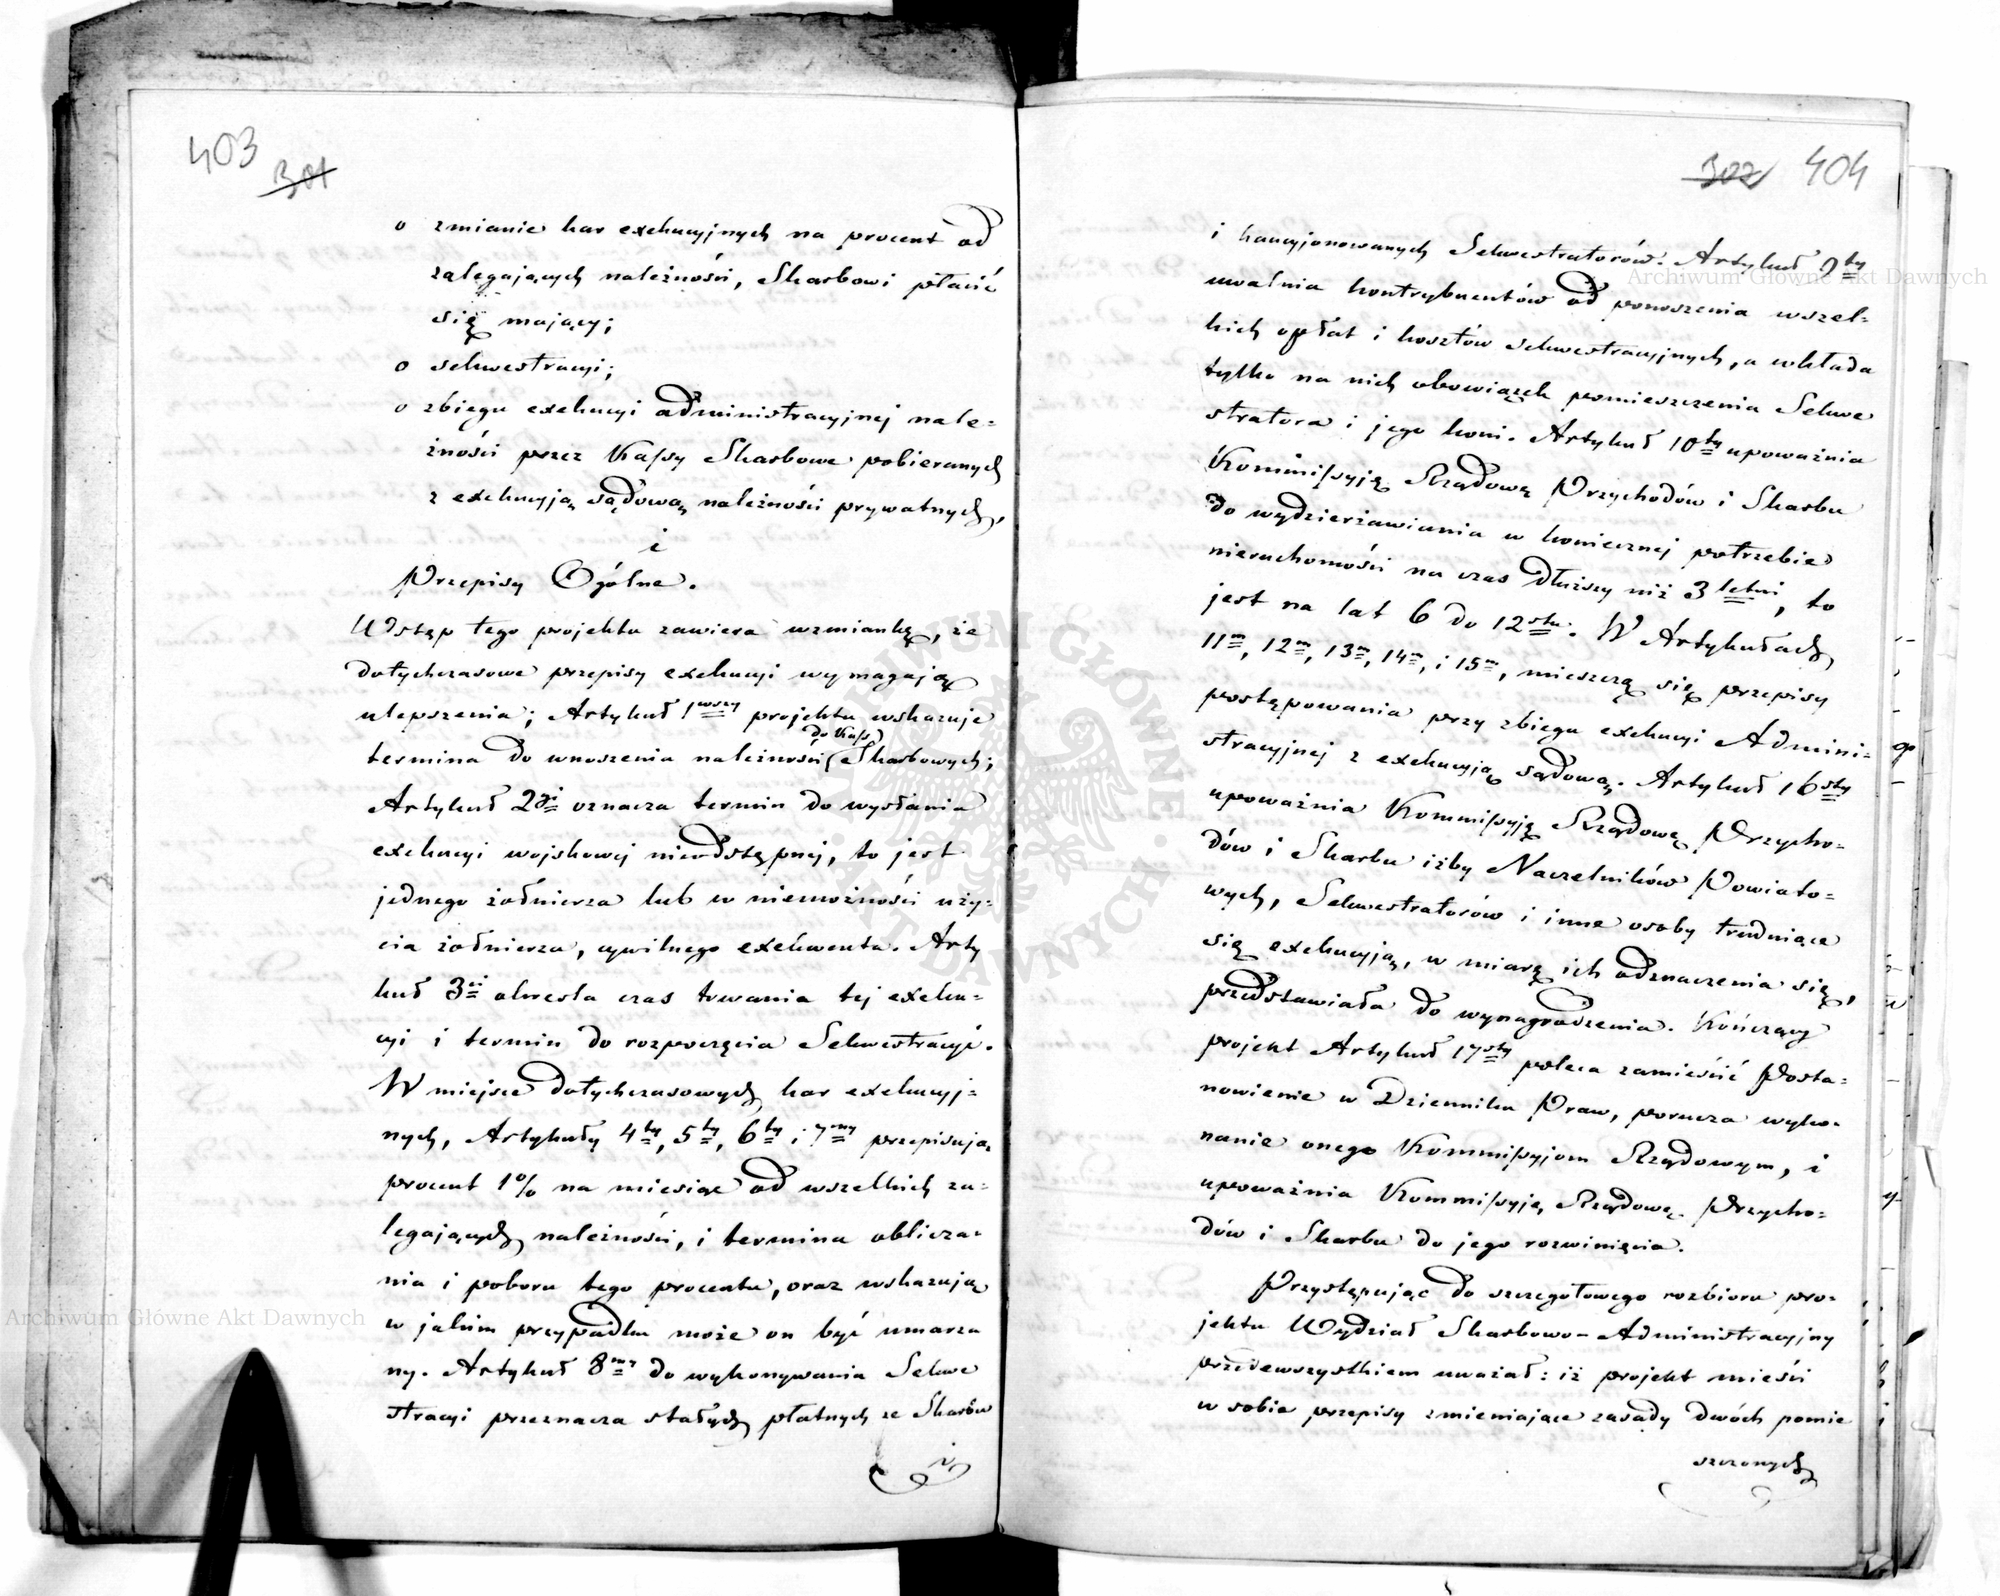 403
301
o zmianie kar exekucyjnych na procent od
zalegających należności, Skarbowi płacić
się mający;
o sekwestracyi;
o zbiegu exekucyi administracyjnej nale=
żności przez Kassy Skarbowe pobieranych
z exekucyją sądową należności prywatnych,
i
Przepisy Ogólne.
Wstęp tego projektu zawiera wzmiankę, że
dotychczasowe przepisy exekucyi wymagają
ulepszenia; Artykuł 1wszy projektu wskazuje
do Kass
termina do wnoszenia należności Skarbowych;
Artykuł 2gi oznacza termin do wysłania
exekucyi wojskowej nieodstępnej, to jest
jednego żołnierza lub w niemożności uży=
cia żołnierza, cywilnego exekwenta. Arty
kuł 3ci określa czas trwania tej exeku=
cyi i termin do rozpoczęcia Sekwestracyi.
W miejsce dotychczasowych kar exekucyj=
nych, Artykuły 4ty, 5ty, 6ty i 7my przepisują
procent 1% na miesiąc od wszelkich za=
legających należności, i termina oblicza=
nia i poboru tego procentu, oraz wskazują
w jakim przypadku może on być umarza
ny. Artykuł 8my do wykonywania Sekwe
stracyi przeznacza stałych płatnych ze Skarbu
i
302 404
i kaucyjonowanych Sekwestratorów. Artykuł 9ty
uwalnia kontrybuentów od ponoszenia wszel=
kich opłat i kosztów sekwestracyjnych, a wkłada
tylko na nich obowiązek pomieszczenia Sekwe
stratora i jego koni. Artykuł 10ty upoważnia
Kommissyję Rządową Przychodów i Skarbu
do wydzierżawiania w koniecznej potrzebie
nieruchomości na czas dłuższy niż 3 letni, to
jest na lat 6 do 12stu. W Artykułach
11m, 12m, 13m, 14m, i 15m, mieszczą się przepisy
postępowania przy zbiegu exekucyi Admini=
stracyjnej z exekucyją sądową. Artykuł 16sty
upoważnia Kommissyję Rządową Przycho=
dów i Skarbu iżby Naczelników Powiato=
wych, Sekwestratorów i inne osoby trudniące
się exekucyją, w miarę ich odznaczenia się,
przedstawiała do wynagrodzenia. Kończący
projekt Artykuł 17sty poleca zamieścić Posta=
nowienie w Dzienniku Praw, porucza wyko=
nanie onego Kommissyjom Rządowym, i
upoważnia Kommissyję Rządową Przycho=
dów i Skarbu do jego rozwinięcia.
Przystępując do szczegółowego rozbioru pro=
jektu Wydział Skarbowo-Administracyjny
przedewszystkiem uważał: iż projekt mieści
w sobie przepisy zmieniające zasady dwóch pomie
szczonych
Archiwum Główne Akt Dawnych
Archiwum Główne Akt Dawnych
ARCHIWUM GŁÓWNE AKT DAWNYCH